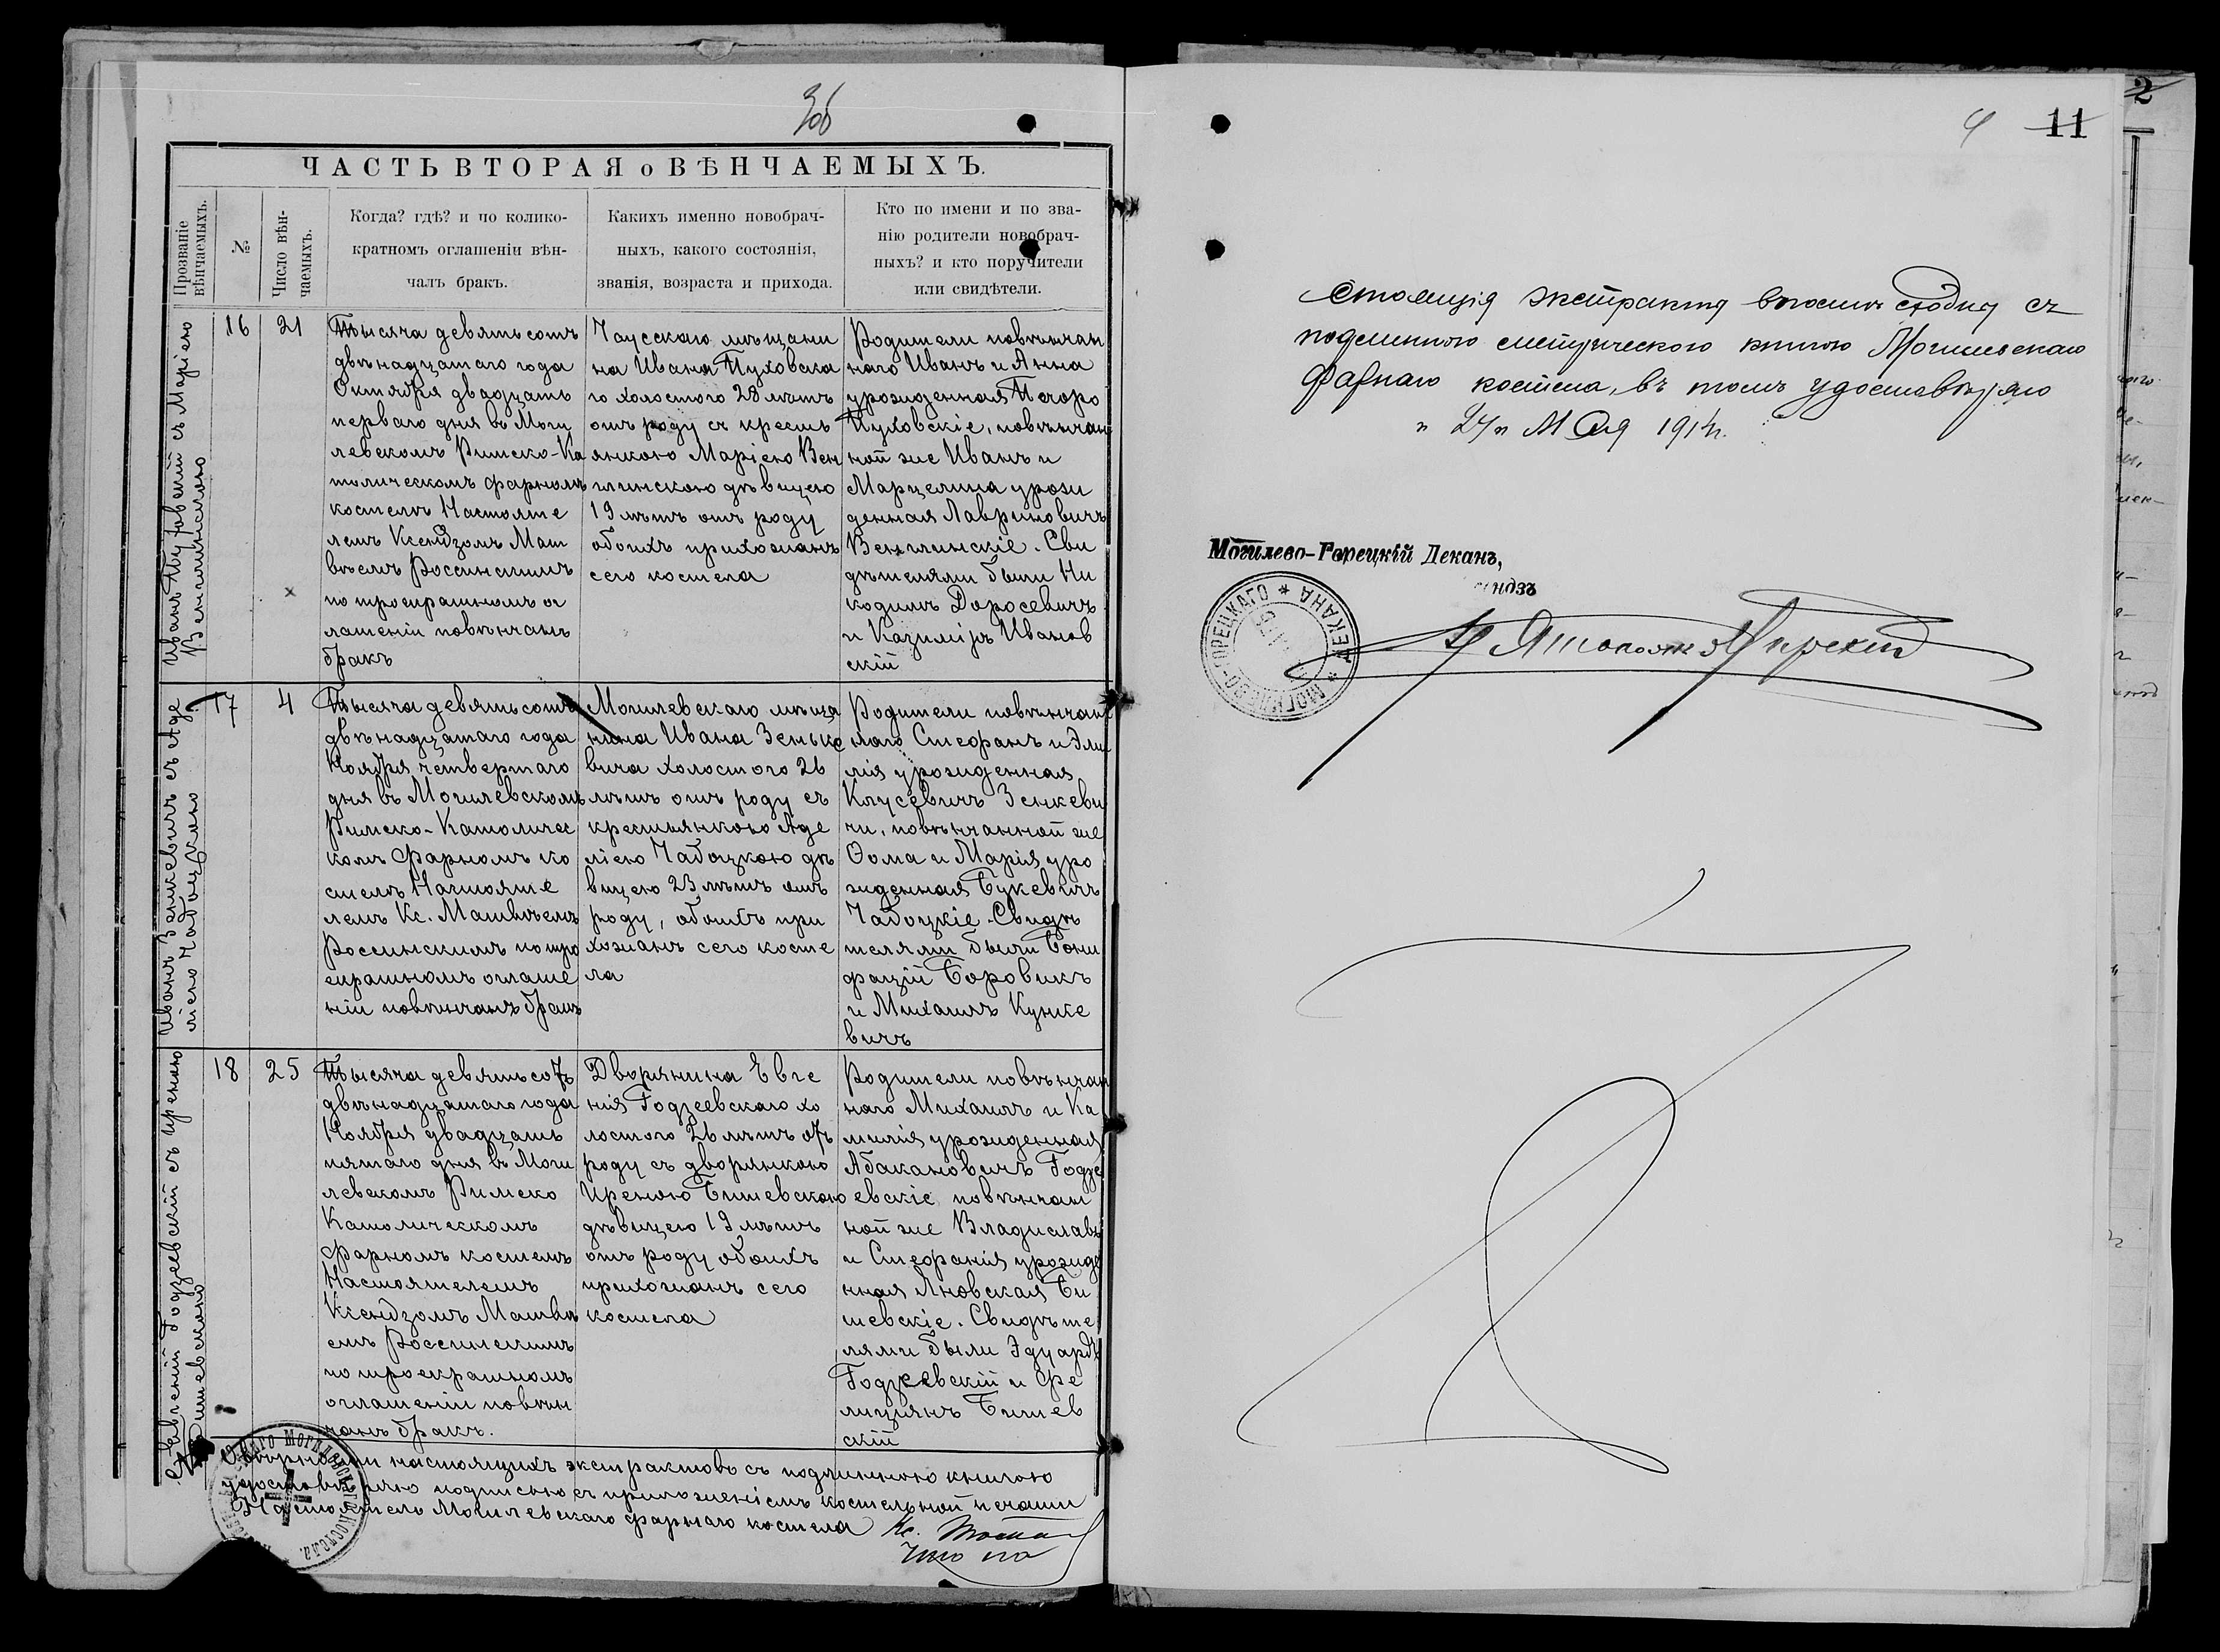 3об
ЧАСТЬ ВТОРАЯ о ВѢНЧАЕМЫХЪ.
Прозваніе вѣнчаемыхъ.
№
Число вѣн-
чаемыхъ.
Когда? гдѣ? и по колико-
кратномъ оглашеніи вѣн-
чалъ бракъ.
Какихъ именно новобрач-
ныхъ, какого состоянія,
званія, возраста и прихода.
Кто по имени и по зва-
нію родители новобрач-
ныхъ? и кто поручители
или свидѣтели.
Иванъ Пуховскій съ Маріею
Венглинскою
16
21
Тысяча девятьсотъ
двѣнадцатаго года
Октября двадцать
перваго дня въ Моги
левскомъ Римско-Ка
толическомъ фарномъ
костелѣ Настояте
лемъ Ксендзомъ Мат
вѣемъ Россинскимъ
по троекратномъ ог
лашеніи повѣнчанъ
бракъ
Чаусскаго мѣщани
на Ивана Пуховска
го холостого 28 лѣтъ
отъ роду съ кресть
янкою Маріею Вен
глинскою дѣвицею
19 лѣтъ отъ роду
обоихъ прихожанъ
сего костела
Родители повѣнчан
наго Иванъ и Анна
урожденная
Пуховскіе, повѣнчан
ной же Иванъ и
Марцелина урож
денная Лавриновичъ
Венглинскіе. Сви
дѣтелями были Ни
кодимъ Доросевичъ
и Казиміръ Иванов
скій
Иванъ Зенкевичъ съ Аде
ліею Чабоцкою
17
4
Тысяча девятьсотъ
двѣнадцатаго года
Ноября четвертаго
дня въ Могилевскомъ
Римско-Католичес
комъ фарномъ ко
стелѣ Настояте
лемъ Кс. Матвѣемъ
Россинскимъ по тро
екратномъ оглаше
ніи повѣнчанъ бракъ
Могилевскаго мѣща
нина Ивана Зенько
вича холостого 26
лѣтъ отъ роду съ
крестьянкою Аде
ліею Чабоцкою дѣ
вицею 23 лѣтъ отъ
роду, обоихъ при
хожанъ сего косте
ла
Родители повѣнчан
наго Стефанъ и Эми
лія урожденная
Клусевичъ Зенкеви
чи, повѣнчанной же
Ѳома и Марія уро
жденная Букевичъ
Чабоцкіе. Свидѣ
телями были Бони
фацій Боровикъ
и Михаилъ Кунке
вичъ
Евгеній Годзевскій съ Иреною
Битевскою
18
25
Тысяча девятьсотъ
двѣнадцатаго года
Ноября двадцать
пятаго дня въ Моги
левскомъ Римско
Католическомъ
фарномъ костелѣ
Настоятелемъ
Ксендзомъ Матвѣ
емъ Россинскимъ
по троекратномъ
оглашеніи повѣн
чанъ бракъ.
Дворянина Евге
нія Годзеевскаго хо
лостого 26 лѣтъ отъ
роду съ дворянкою
Иреною Битевскою
дѣвицею 19 лѣтъ
отъ роду обоихъ
прихожанъ сего
костела
Родители повѣнчан
наго Михаилъ и Ка
милія урожденная
Абакановичъ Годзе
евскіе, повѣнчан
ной же Владиславъ
и Стефанія урожде
нная Яновская Би
тевскіе. Свидѣте
лями были Эдуардъ
Годзеевскій и Фе
лиціянъ Битев
скій
настоящихъ экстрактовъ съ подлинною книгою
удостовѣряю подписью съ приложеніемъ костельной печати
Настоятель Могилевскаго фарнаго костела Кс.
4 11
экстрактъ сходны съ
подлинною метрическою книгою Могилевскаго
Фарнаго костела, въ томъ удостовѣряю
" 24 " Мая 1914 г.
Могилево-Горецкій Деканъ,
ДЕКАНА * МОГИЛЕВО-ГОРЕЦКАГО *
2